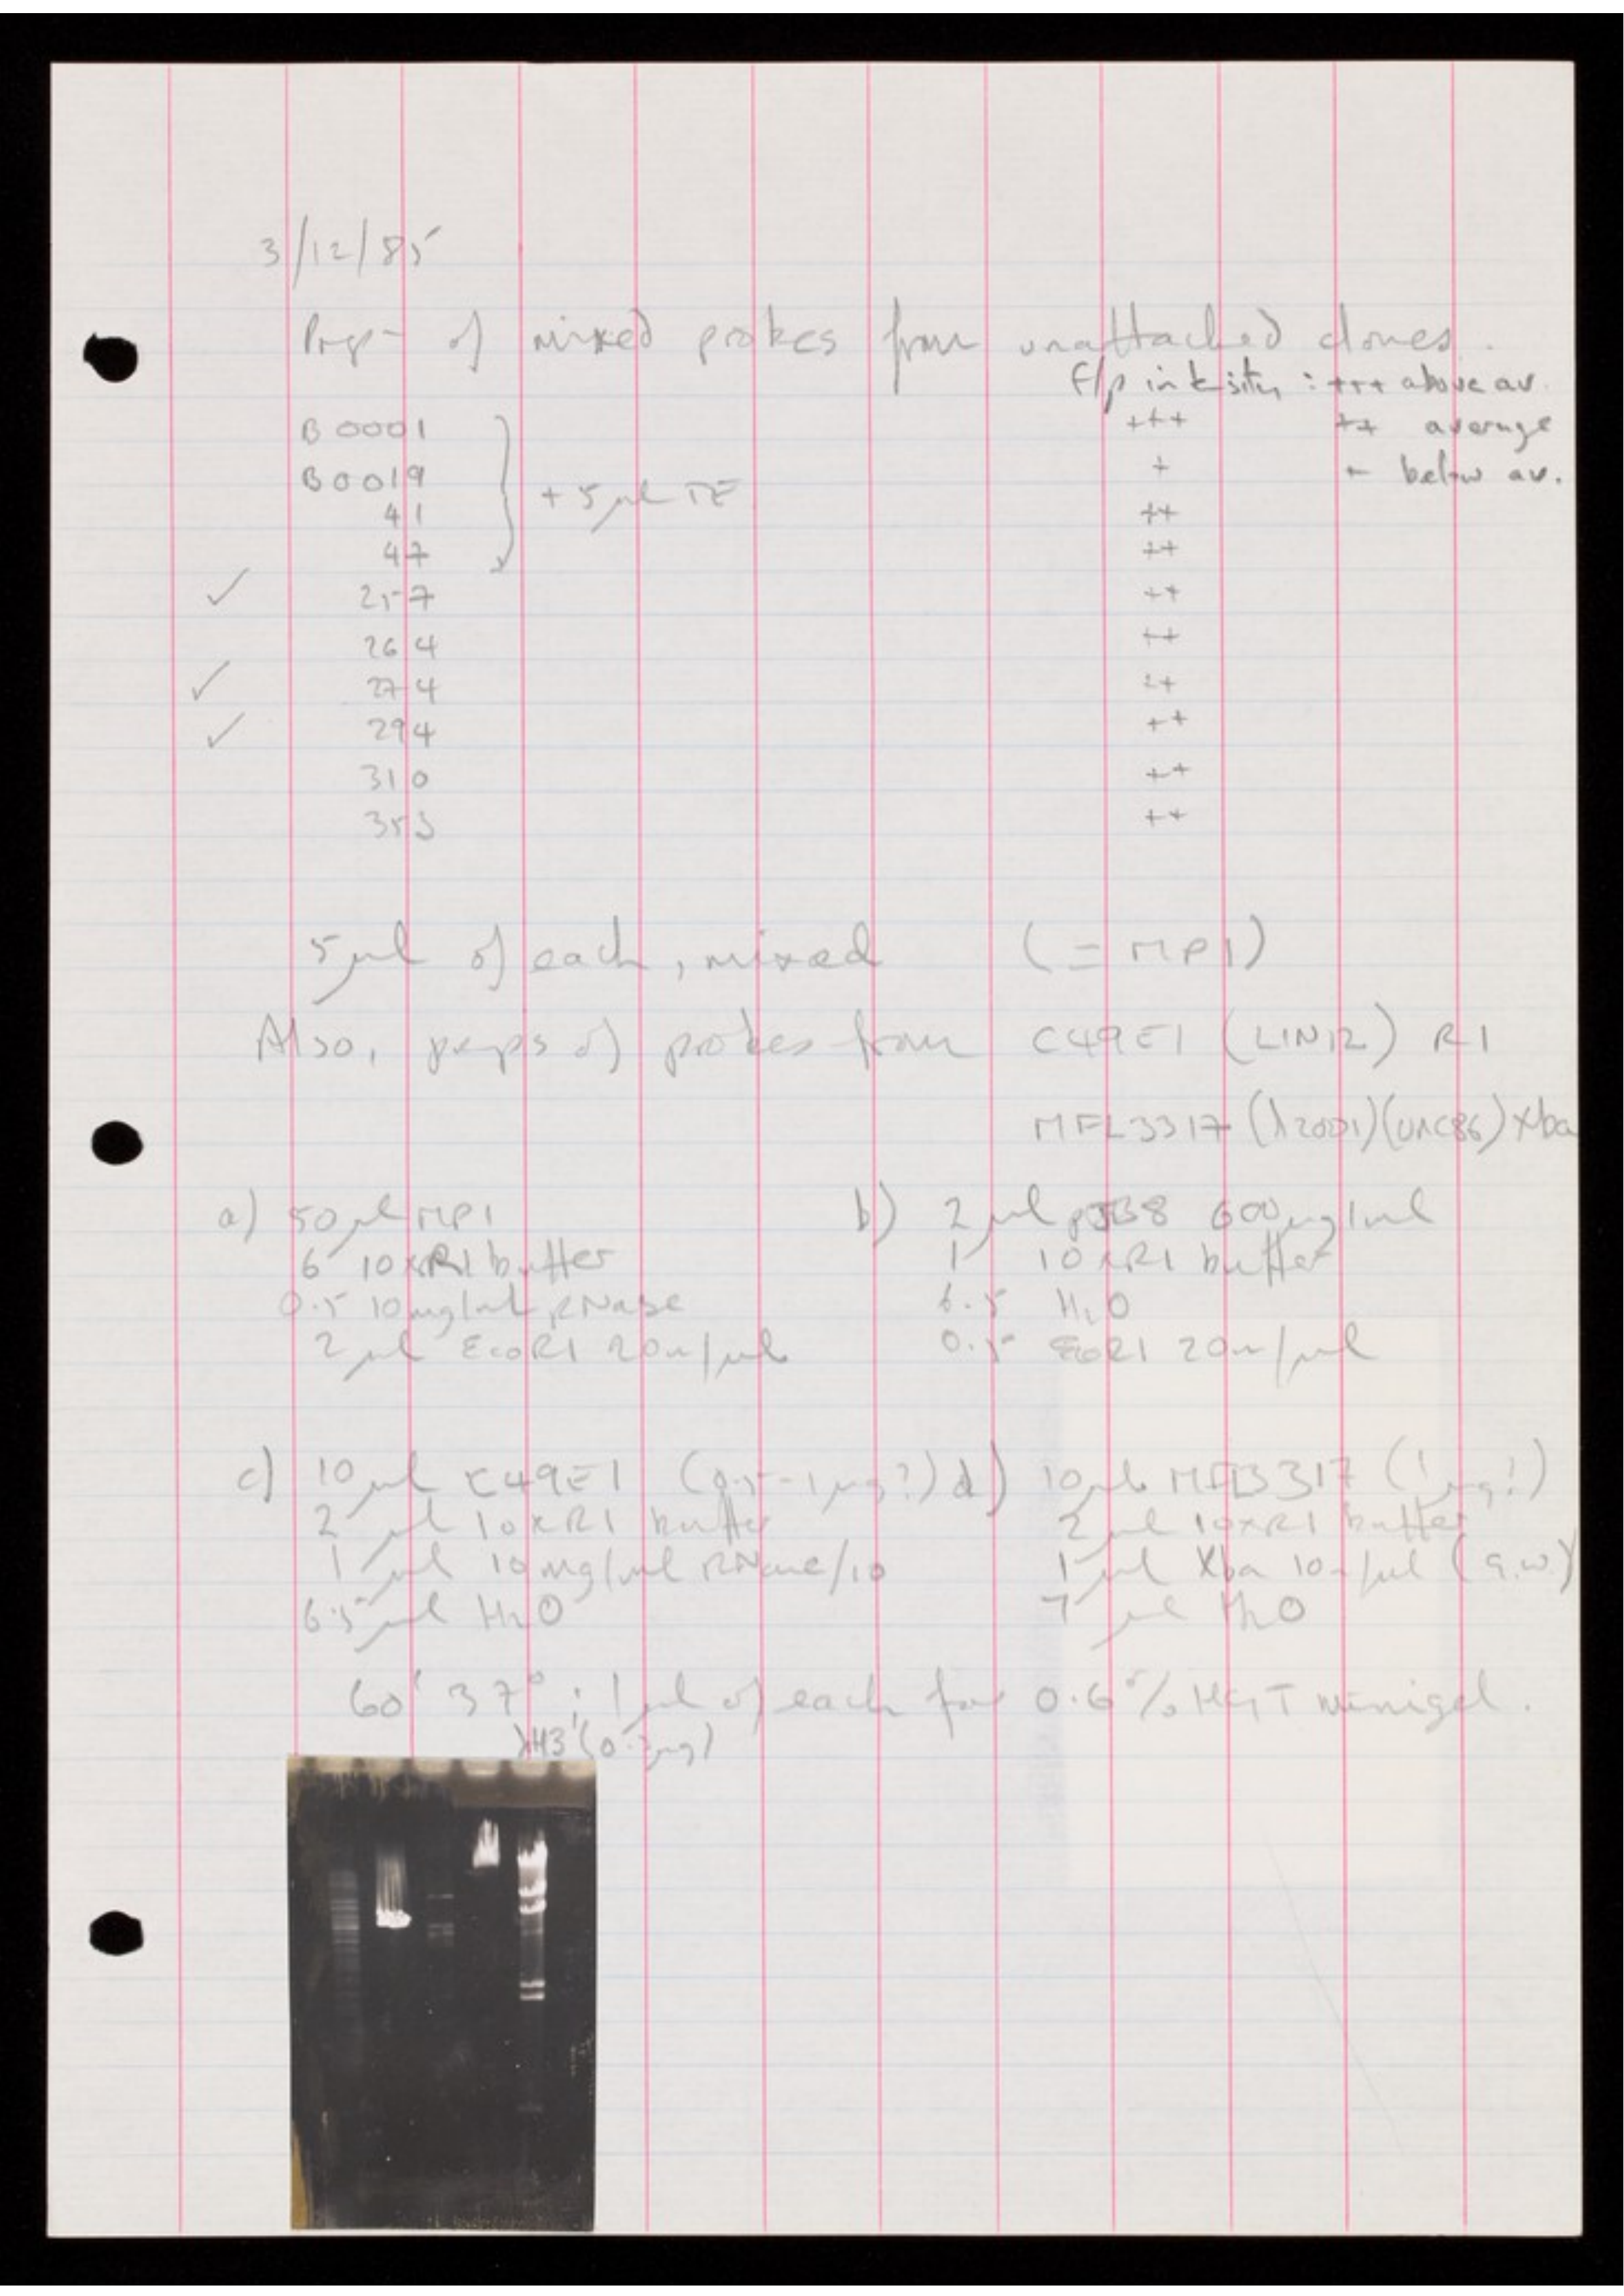 3/12/85
Prepn of mixed probes from unattached clones.
F/p intensity : +++ above av.
B0001 +++ ++ average
B0019 + + below av.
+ 5 µl TE
41 ++
47 ++
✓ 257 ++
264 ++
✓ 274 ++
✓ 294 ++
310 ++
353 ++
5 µl of each, mixed (= MP1)
Also, preps of probes from C49E1 (LIN12) R1
MFL3317 (λ2001)(UNC86) Xba
a) 50 µl MP1
6 10xR1 buffer
0.5 10mg/ml RNase
2 µl EcoR1 20u/µl
b) 2 µl pJB8 600µg/ml
1 10xR1 buffer
6.5 H2O
0.5 EcoR1 20u/µl
c) 10 µl C49E1 (0.5-1µg?)
2 µl 10xR1 buffer
1 µl 10mg/ml RNase/10
6.5 µl H2O
d) 10µl MFL3317 (1µg?)
2 µl 10xR1 buffer
1 µl Xba 10u/µl (a.w)
7 µl H2O
60' 37° ; 1 µl of each for 0.6% HGT minigel.
λH3 (0. µg)